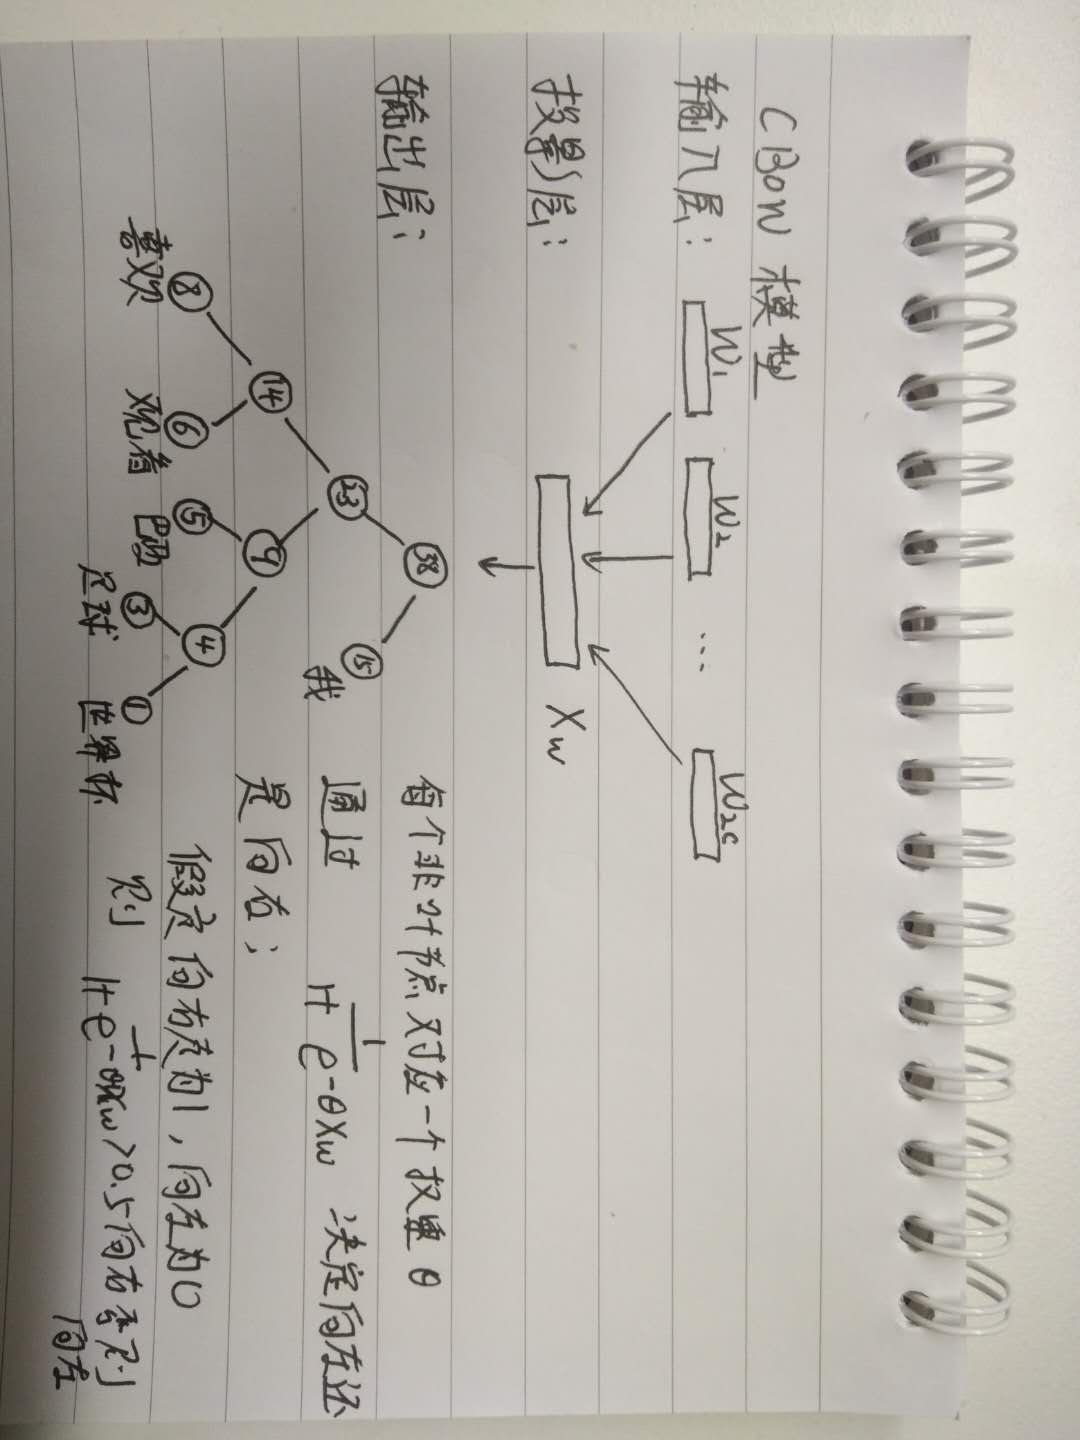 CBOW 模型
输入层:
W₁ W₂ ... W₂c
投影层:
Xw
输出层:
38
23 15 我
14 9
8 6 5 4
喜欢 观看 巴西
3 1
足球 世界杯
每个非叶节点对应一个权重 θ
通过 1/(1+e^-θXw) 决定向左还
是向右;
假定向右走为1,向左为0
则 1/(1+e^-θXw) >0.5 向右否则
向左